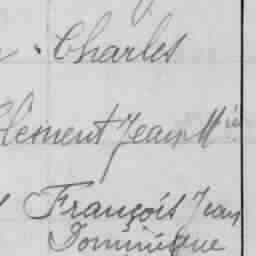 Charles
Clément Jean M
François Jean
Dominique